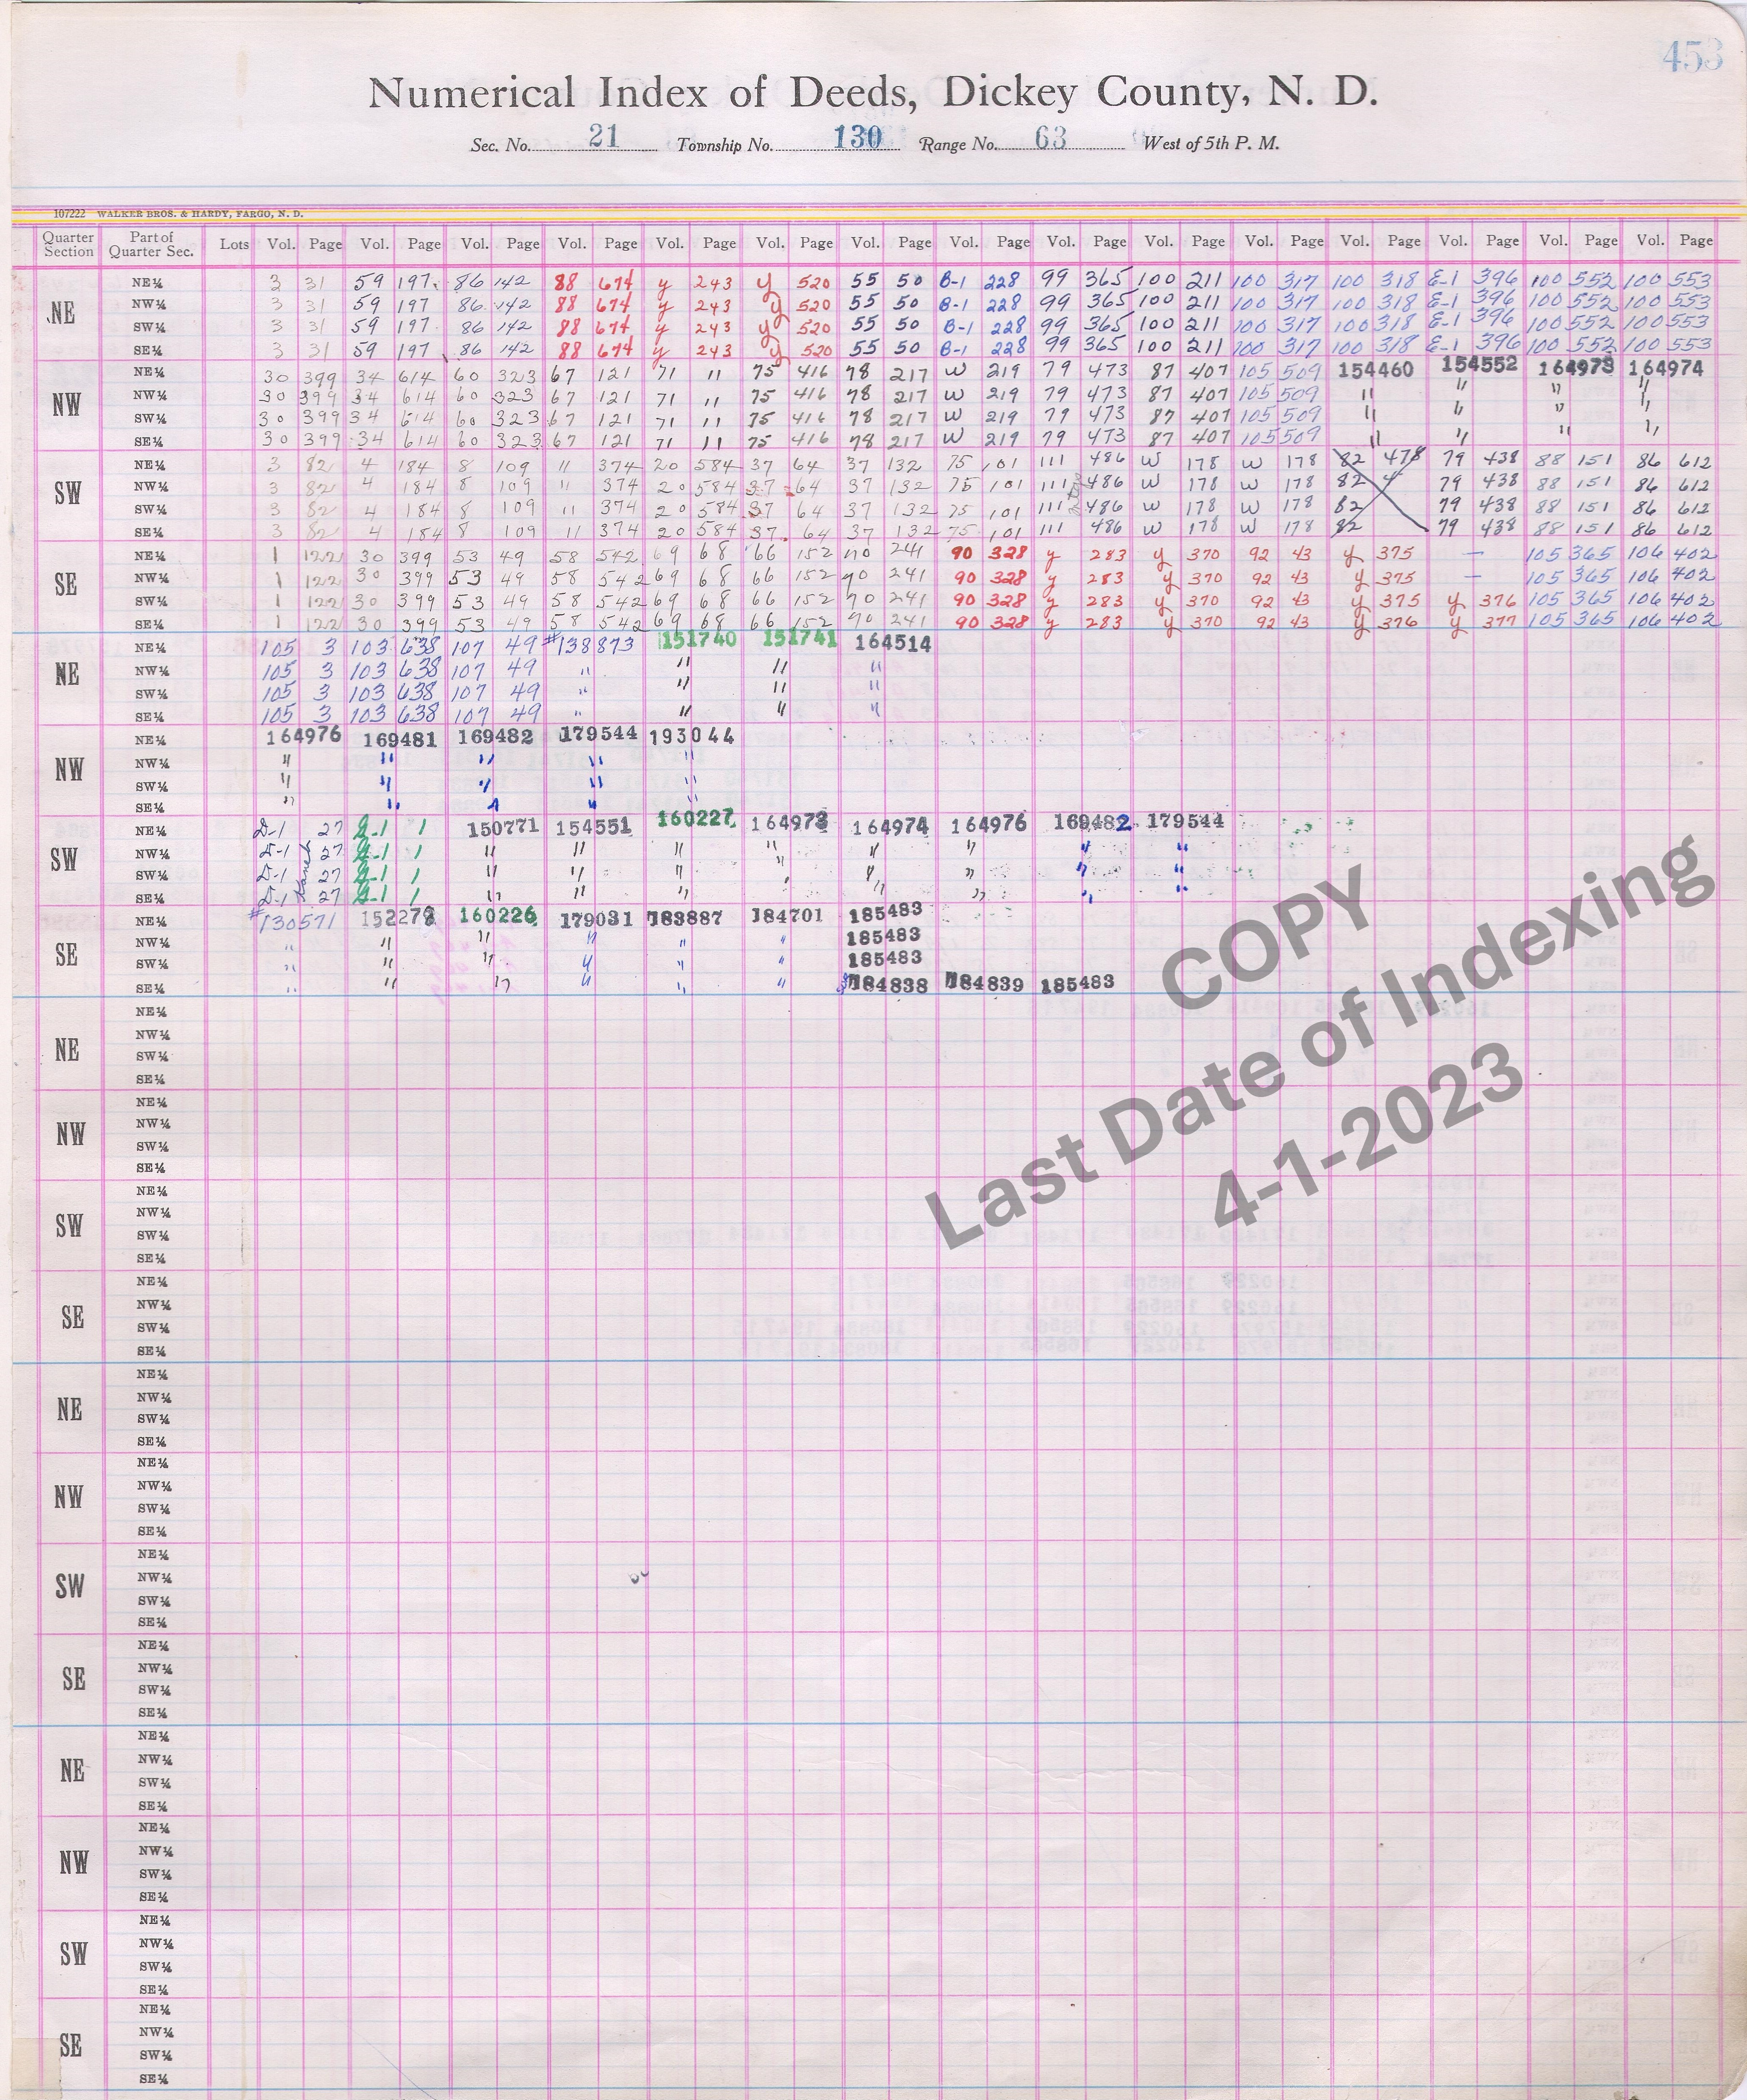 453
Numerical Index of Deeds, Dickey County, N. D.
Sec. No. 21 Township No. 130 Range No. 63 West of 5th P. M.
107222 WALKER BROS. & HARDY, FARGO, N. D.
Quarter Section Part of Quarter Sec. Lots Vol. Page Vol. Page Vol. Page Vol. Page Vol. Page Vol. Page Vol. Page Vol. Page Vol. Page Vol. Page Vol. Page Vol. Page Vol. Page Vol. Page Vol. Page
NE NE¼ 3 31 59 197 86 142 88 674 y 243 y 520 55 50 B-1 228 99 365 100 211 100 317 100 318 E-1 396 100 552 100 553
NW¼ 3 31 59 197 86 142 88 674 y 243 y 520 55 50 B-1 228 99 365 100 211 100 317 100 318 E-1 396 100 552 100 553
SW¼ 3 31 59 197 86 142 88 674 y 243 y 520 55 50 B-1 228 99 365 100 211 100 317 100 318 E-1 396 100 552 100 553
SE¼ 3 31 59 197 86 142 88 674 y 243 y 520 55 50 B-1 228 99 365 100 211 100 317 100 318 E-1 396 100 552 100 553
NW NE¼ 30 399 34 614 60 323 67 121 71 11 75 416 78 217 W 219 79 473 87 407 105 509 154460 154552 164973 164974
NW¼ 30 399 34 614 60 323 67 121 71 11 75 416 78 217 W 219 79 473 87 407 105 509 " " " "
SW¼ 30 399 34 614 60 323 67 121 71 11 75 416 78 217 W 219 79 473 87 407 105 509 " " " "
SE¼ 30 399 34 614 60 323 67 121 71 11 75 416 78 217 W 219 79 473 87 407 105 509 " " " "
SW NE¼ 3 82 4 184 8 109 11 374 20 584 37 64 37 132 75 101 111 486 W 178 W 178 82 478 79 438 88 151 86 612
NW¼ 3 82 4 184 8 109 11 374 20 584 37 64 37 132 75 101 111 486 W 178 W 178 82 4 79 438 88 151 86 612
SW¼ 3 82 4 184 8 109 11 374 20 584 37 64 37 132 75 101 111 486 W 178 W 178 82 79 438 88 151 86 612
SE¼ 3 82 4 184 8 109 11 374 20 584 37 64 37 132 75 101 111 486 W 178 W 178 82 79 438 88 151 86 612
SE NE¼ 1 122 30 399 53 49 58 542 69 68 66 152 90 241 90 328 y 283 y 370 92 43 y 375 — 105 365 106 402
NW¼ 1 122 30 399 53 49 58 542 69 68 66 152 90 241 90 328 y 283 y 370 92 43 y 375 — 105 365 106 402
SW¼ 1 122 30 399 53 49 58 542 69 68 66 152 90 241 90 328 y 283 y 370 92 43 y 375 y 376 105 365 106 402
SE¼ 1 122 30 399 53 49 58 542 69 68 66 152 90 241 90 328 y 283 y 370 92 43 y 376 y 377 105 365 106 402
NE NE¼ 105 3 103 638 107 49 #138873 151740 151741 164514
NW¼ 105 3 103 638 107 49 " " " "
SW¼ 105 3 103 638 107 49 " " " "
SE¼ 105 3 103 638 107 49 " " " "
NW NE¼ 164976 169481 169482 179544 193044
NW¼ " " " " "
SW¼ " " " " "
SE¼ " " " " "
SW NE¼ D-1 27 G-1 1 150771 154551 160227 164973 164974 164976 169482 179544
NW¼ D-1 27 G-1 1 " " " " " " " "
SW¼ D-1 27 G-1 1 " " " " " " " "
SE¼ D-1 27 G-1 1 " " " " " " "
SE NE¼ #130571 152278 160226 179031 183887 184701 185483
NW¼ " " " " " " 185483
SW¼ " " " " " " 185483
SE¼ " " " " " " 184838 184839 185483
NE NE¼
NW¼
SW¼
SE¼
NW NE¼
NW¼
SW¼
SE¼
SW NE¼
NW¼
SW¼
SE¼
SE NE¼
NW¼
SW¼
SE¼
NE NE¼
NW¼
SW¼
SE¼
NW NE¼
NW¼
SW¼
SE¼
SW NE¼
NW¼
SW¼
SE¼
SE NE¼
NW¼
SW¼
SE¼
NE NE¼
NW¼
SW¼
SE¼
NW NE¼
NW¼
SW¼
SE¼
SW NE¼
NW¼
SW¼
SE¼
SE NE¼
NW¼
SW¼
SE¼
COPY
Last Date of Indexing
4-1-2023